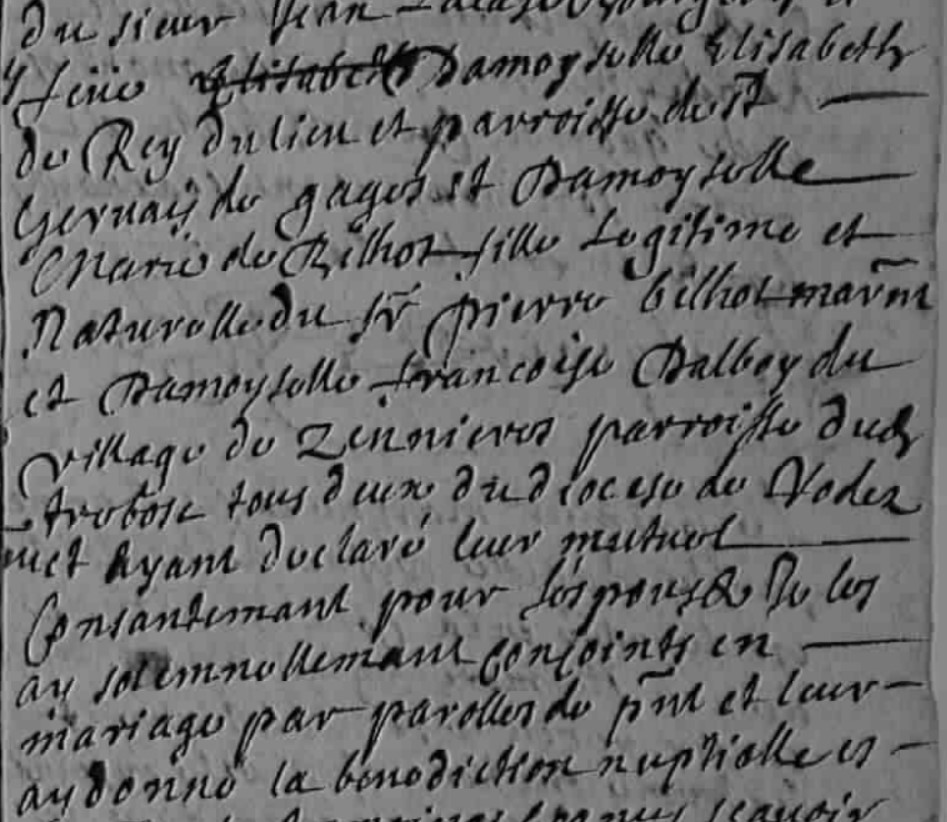 du sieur Jean
feüe Elisabeth Damoyselle Elisabeth
de Rey du lieu et parroisse de st
Gervais de gages et Damoyselle
Marie de Bilhot fille Legitime et
Naturelle du sr pierre bilhot
et Damoyselle françoise Dalboy du
village de Zennieres parroisse dud
tous deux du diocese de Rodez
Ayant declaré leur mutuel
Consantemant pour les
ay solemnellemant conjoints en
mariage par parolles de pnt et leur
ay donné la benediction nuptialle